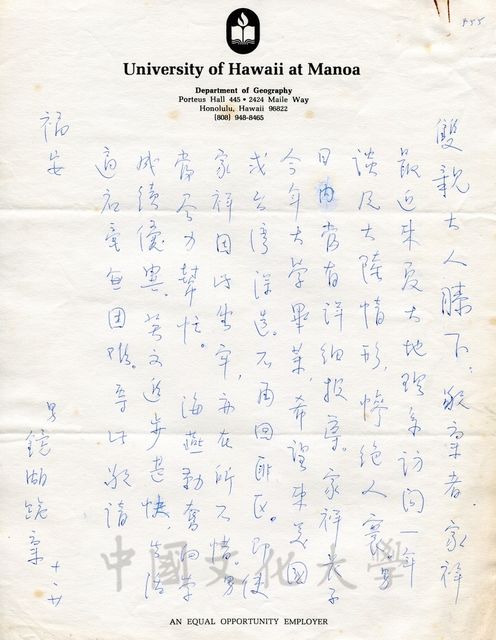 855
University of Hawaii at Manoa
Department of Geography
Porteus Hall 445 • 2424 Maile Way
Honolulu, Hawaii 96822
(808) 948-8465
雙親大人膝下：敬稟者家祥
最近來夏大地理系訪問一年
談及大陸情形，慘絕人寰。男
日內當有詳細報導。家祥長子
今年大學畢業，希望來美國
或台灣深造。不再回匪區。即使
家祥因此坐牢，亦在所不惜。男
當盡力幫忙。海燕勤奮向學
成績優異，英文進步甚快，生活
適和毫無困難。專此敬請
福安
男鏡湖跪稟 十、廿
中國文化大學
AN EQUAL OPPORTUNITY EMPLOYER